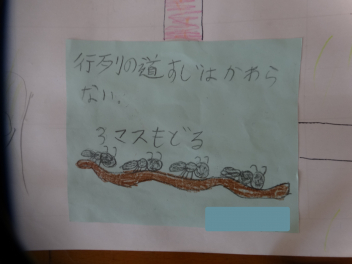 行列の道すじはかわら
ない。
3マスもどる